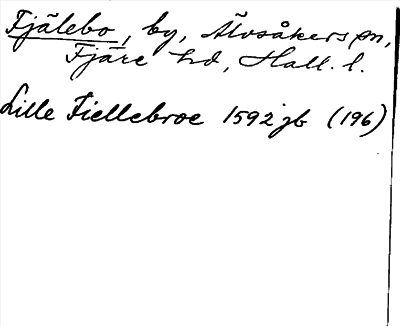 Fjälebo, by, Älvsåkers sn,
Fjäre hd, Hall. l.
Lille Fiellebroe 1592 jb (196)